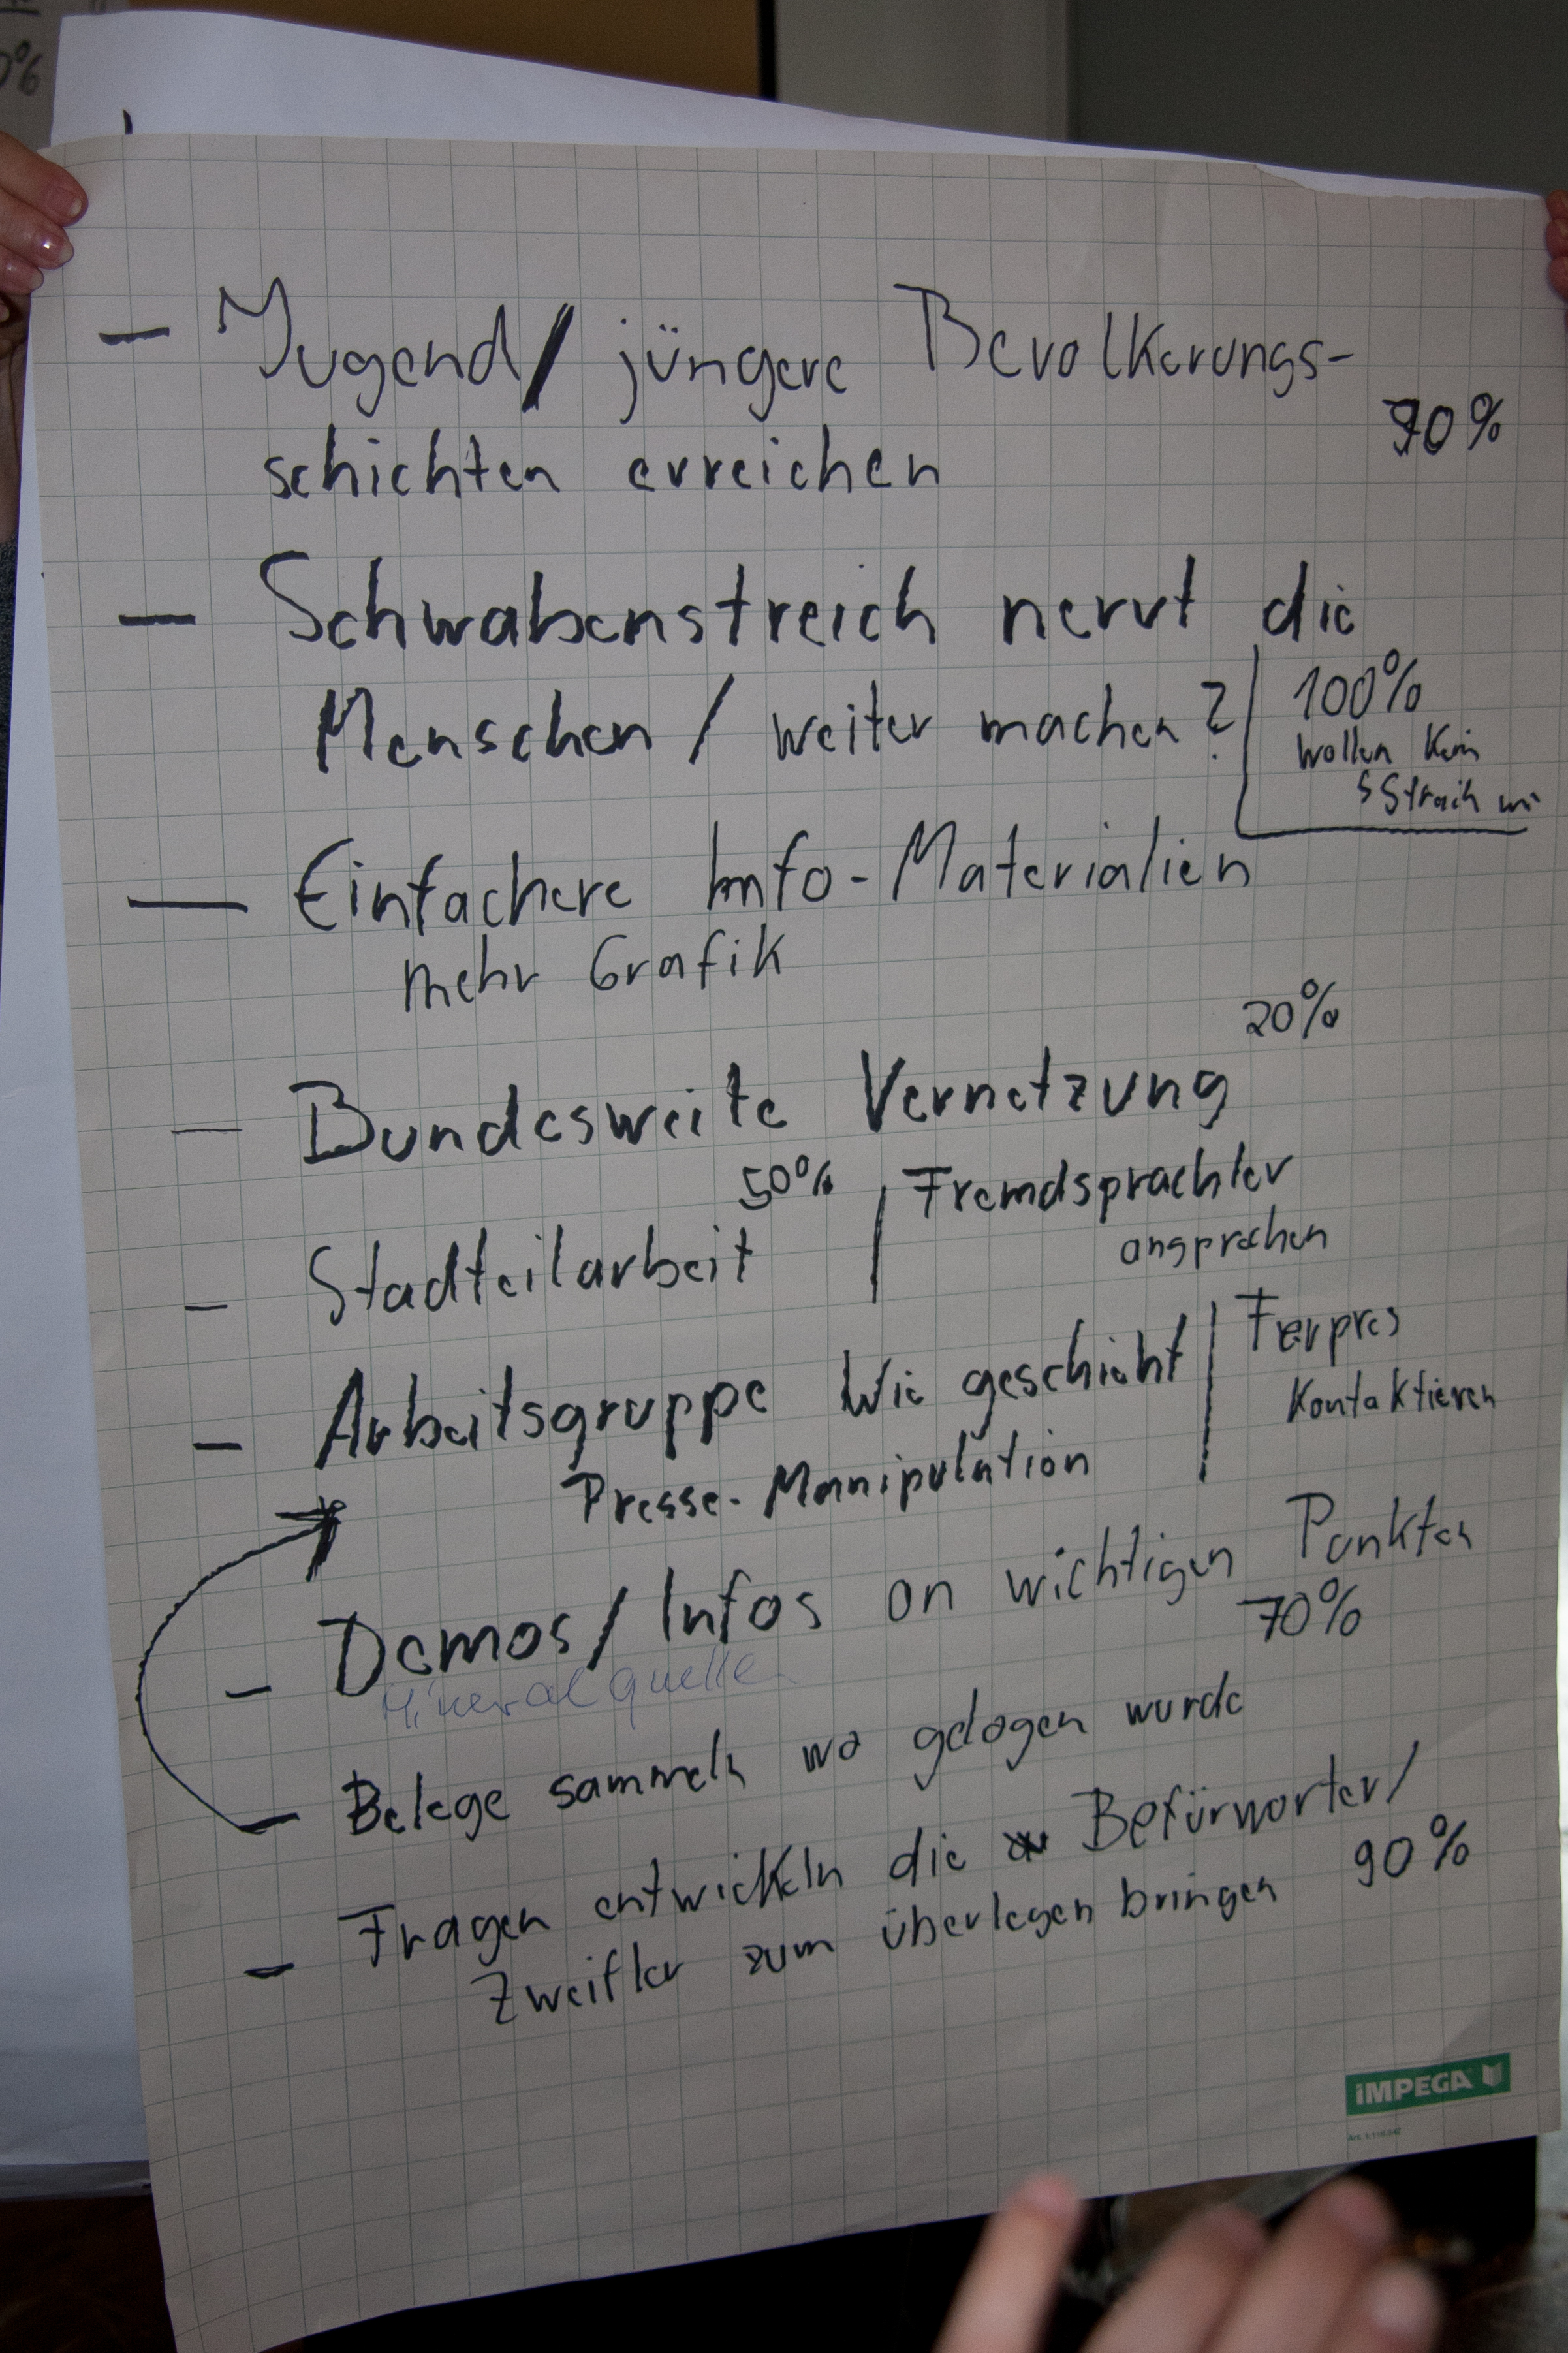 0%
- Jugend/ jüngere Bevolkerungs-
90%
schichten erreichen
- Schwabenstreich nervt die
Menschen / weiter machen?
100%
wollen kein
SStreich
- Einfachere Info-Materialien
mehr Grafik
20%
- Bundesweite Vernetzung
50%
- Stadteilarbeit
Fremdsprachler
ansprechen
- Arbeitsgruppe Wie geschieht
Presse-Manipulation
Ferpres
Kontaktieren
- Demos/Infos an wichtigen Punkten
70%
Mineralquellen
- Belege sammeln wo gelogen wurde
- Fragen entwickeln die Befürworter/
Zweifler zum überlegen bringen 90%
iMPEGA